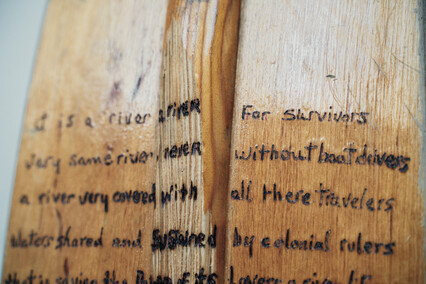 It is a river river For survivors
very same river, never without boat divers
a river very covered with all there travelers
Waters shared and sustained by colonial rulers
the of its a river